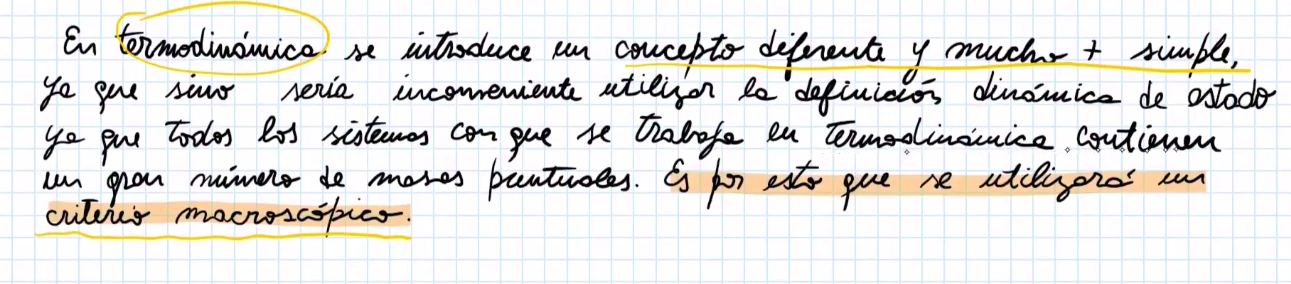 En termodinámica se introduce un concepto diferente y mucho + simple,
ya que sino sería inconveniente utilizar la definición dinámica de estado
ya que todos los sistemas con que se trabaja en Termodinámica contienen
un gran número de masas puntuales. Es por esto que se utilizará un
criterio macroscópico.